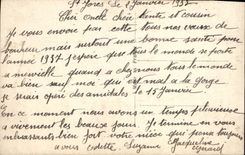 St Jores le 2 Janvier 1937
Cher oncle chère tante et cousin
Je vous envoie par cette tous nos vœux de
bonheur mais surtout une bonne santé pour
l'année 1937. J'espère que tout le monde se porte
a merveille quand a nous tout le monde
va bien sauf moi qui est mal a la gorge
je serais opéré des amidales le 15 Janvier
En ce moment nous avons un temps pluvieux
a vivement les beaux jours Je termine en vous
embrassants bien fort votre nièce qui pense toujours
a vous Odette Suzanne Jacqueline